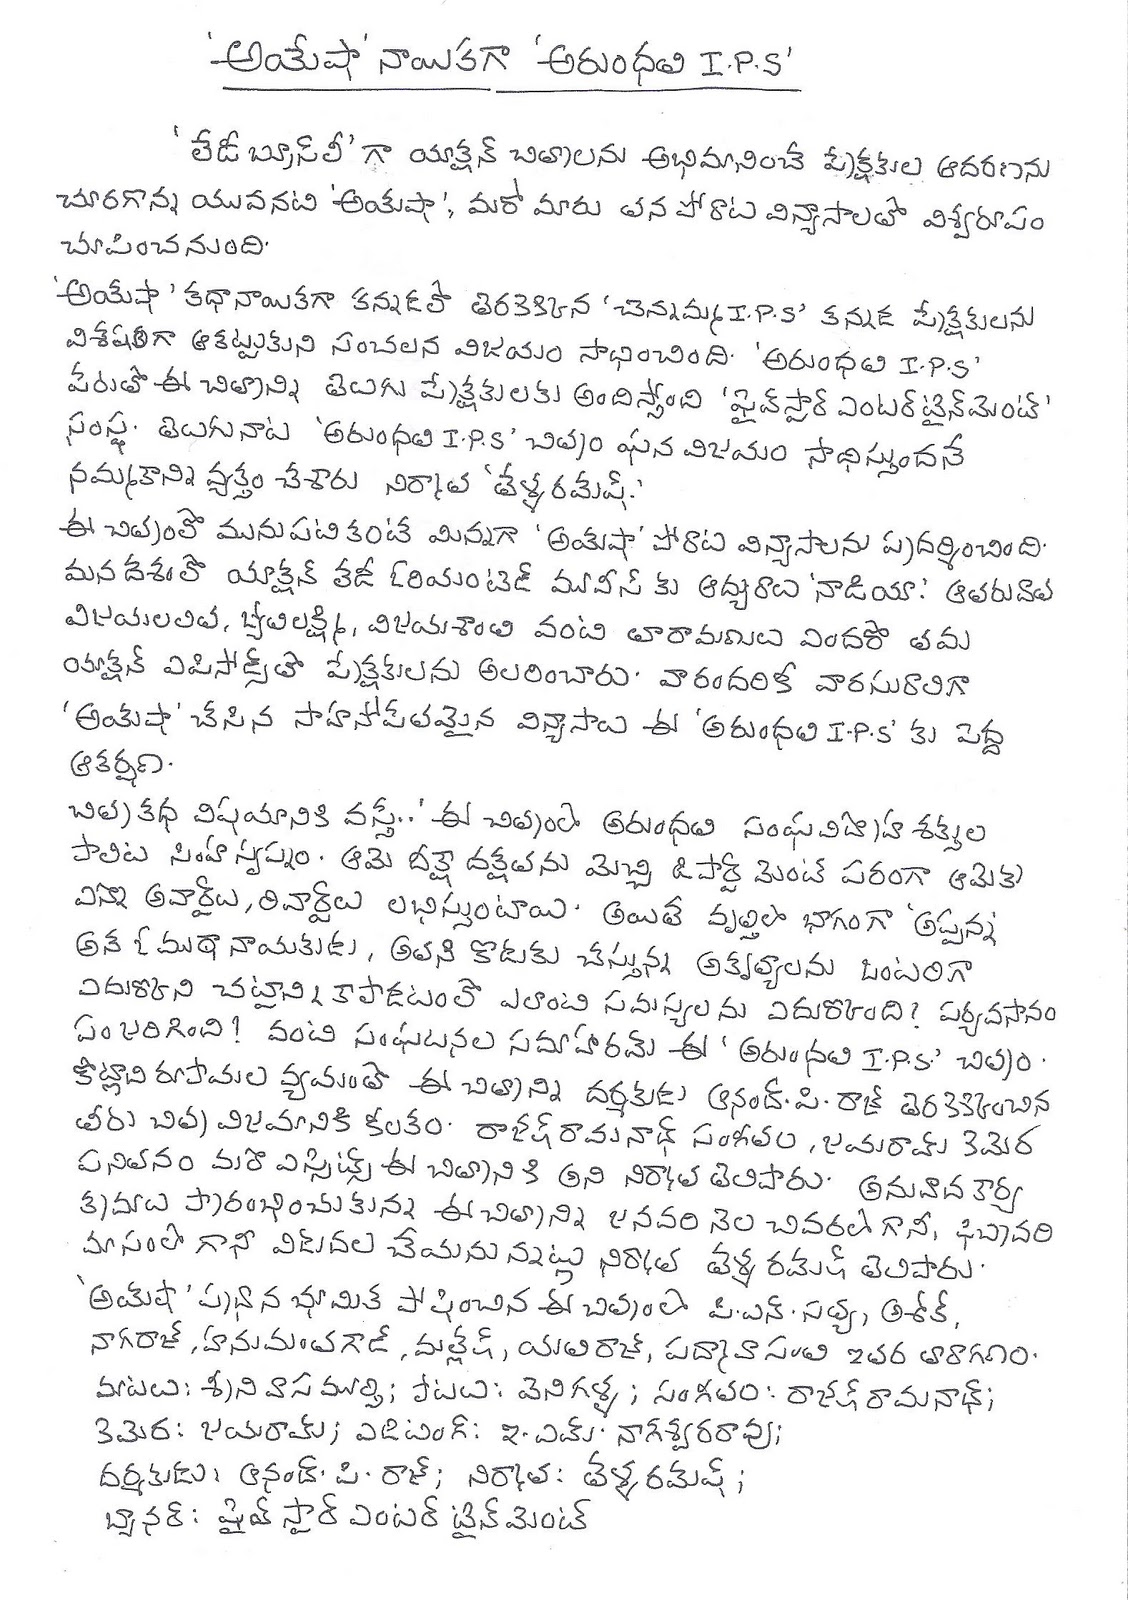 'అయేషా' నాయికగా 'అరుంధతి I.P.S'
'లేడీ బ్రూస్‌లీ' గా యాక్షన్ చిత్రాలను అభిమానించే ప్రేక్షకుల ఆదరణను
చూరగొన్న యువనటి 'అయేషా', మరో మారు తన పోరాట విన్యాసాలతో విశ్వరూపం
చూపించనుంది.
'అయేషా' కథానాయికగా కన్నడలో తెరకెక్కిన 'చెన్నమ్మ I.P.S' కన్నడ ప్రేక్షకులను
విశేషంగా ఆకట్టుకుని సంచలన విజయం సాధించింది. 'అరుంధతి I.P.S'
పేరుతో ఈ చిత్రాన్ని తెలుగు ప్రేక్షకులకు అందిస్తోంది 'ఫైవ్‌స్టార్ ఎంటర్‌టైన్‌మెంట్'
సంస్థ. తెలుగునాట 'అరుంధతి I.P.S' చిత్రం ఘన విజయం సాధిస్తుందనే
నమ్మకాన్ని వ్యక్తం చేశారు నిర్మాత 'తేళ్ళ రమేష్.'
ఈ చిత్రంలో మునుపటికంటే మిన్నగా 'అయేషా' పోరాట విన్యాసాలను ప్రదర్శించింది.
మన దేశంలో యాక్షన్ లేడీ ఓరియంటెడ్ మూవీస్ కు ఆద్యురాలు 'నాడియా.' ఆతరువాత
విజయలలిత, జ్యోతిలక్ష్మి, విజయశాంతి వంటి తారామణులు ఎందరో తమ
యాక్షన్ ఎపిసోడ్స్‌తో ప్రేక్షకులను అలరించారు. వారందరికీ వారసురాలిగా
'అయేషా' చేసిన సాహసోపేతమైన విన్యాసాలు ఈ 'అరుంధతి I.P.S' కు పెద్ద
ఆకర్షణ.
చిత్ర కథ విషయానికి వస్తే..' ఈ చిత్రంలో అరుంధతి సంఘవిద్రోహ శక్తుల
పాలిట సింహస్వప్నం. ఆమె దీక్షా దక్షతను మెచ్చి డిపార్ట్ మెంట్ పరంగా ఆమెకు
ఎన్నో అవార్డులు, రివార్డులు లభిస్తుంటాయి. అయితే వృత్తిలో భాగంగా 'అప్పన్న'
అనే ఓ ముఠా నాయకుడు, అతని కొడుకు చేస్తున్న అకృత్యాలను ఒంటరిగా
ఎదుర్కొని చట్టాన్ని కాపాడటంలో ఎలాంటి సమస్యలను ఎదుర్కొంది? పర్యవసానం
ఏంజరిగింది? వంటి సంఘటనల సమాహారమే ఈ 'అరుంధతి I.P.S.' చిత్రం.
కోట్లాది రూపాయల వ్యయంతో ఈ చిత్రాన్ని దర్శకుడు ఆనంద్.పి.రాజ్ తెరకెక్కించిన
తీరు చిత్ర విజయానికి కీలకం. రాజేష్ రామనాథ్ సంగీతం, జయరామ్ కెమెర
పనితనం మరో ఎస్సెట్స్ ఈ చిత్రానికి అని నిర్మాత తెలిపారు. అనువాద కార్య
క్రమాలు ప్రారంభించుకున్న ఈచిత్రాన్ని జనవరి నెల చివరలోగానీ, ఫిబ్రవరి
మాసంలో గానీ విడుదల చేయనున్నట్లు నిర్మాత తేళ్ళ రమేష్ తెలిపారు.
'అయేషా' ప్రధాన భూమిక పోషించిన ఈ చిత్రంలో పి.ఎన్.సత్య, అశోక్,
నాగరాజ్, హనుమంతగౌడ్, మల్లేష్, యతిరాజ్, పద్మావాసంతి ఇతర తారాగణం.
మాటలు: శ్రీనివాసమూర్తి; పాటలు: వెనిగళ్ళ; సంగీతం: రాజేష్ రామనాథ్;
కెమెర: జయరామ్; ఎడిటింగ్: ఇ.ఎమ్. నాగేశ్వరరావు;
దర్శకుడు: ఆనంద్.పి.రాజ్; నిర్మాత: తేళ్ళ రమేష్;
బ్యానర్: ఫైవ్ స్టార్ ఎంటర్ టైన్ మెంట్